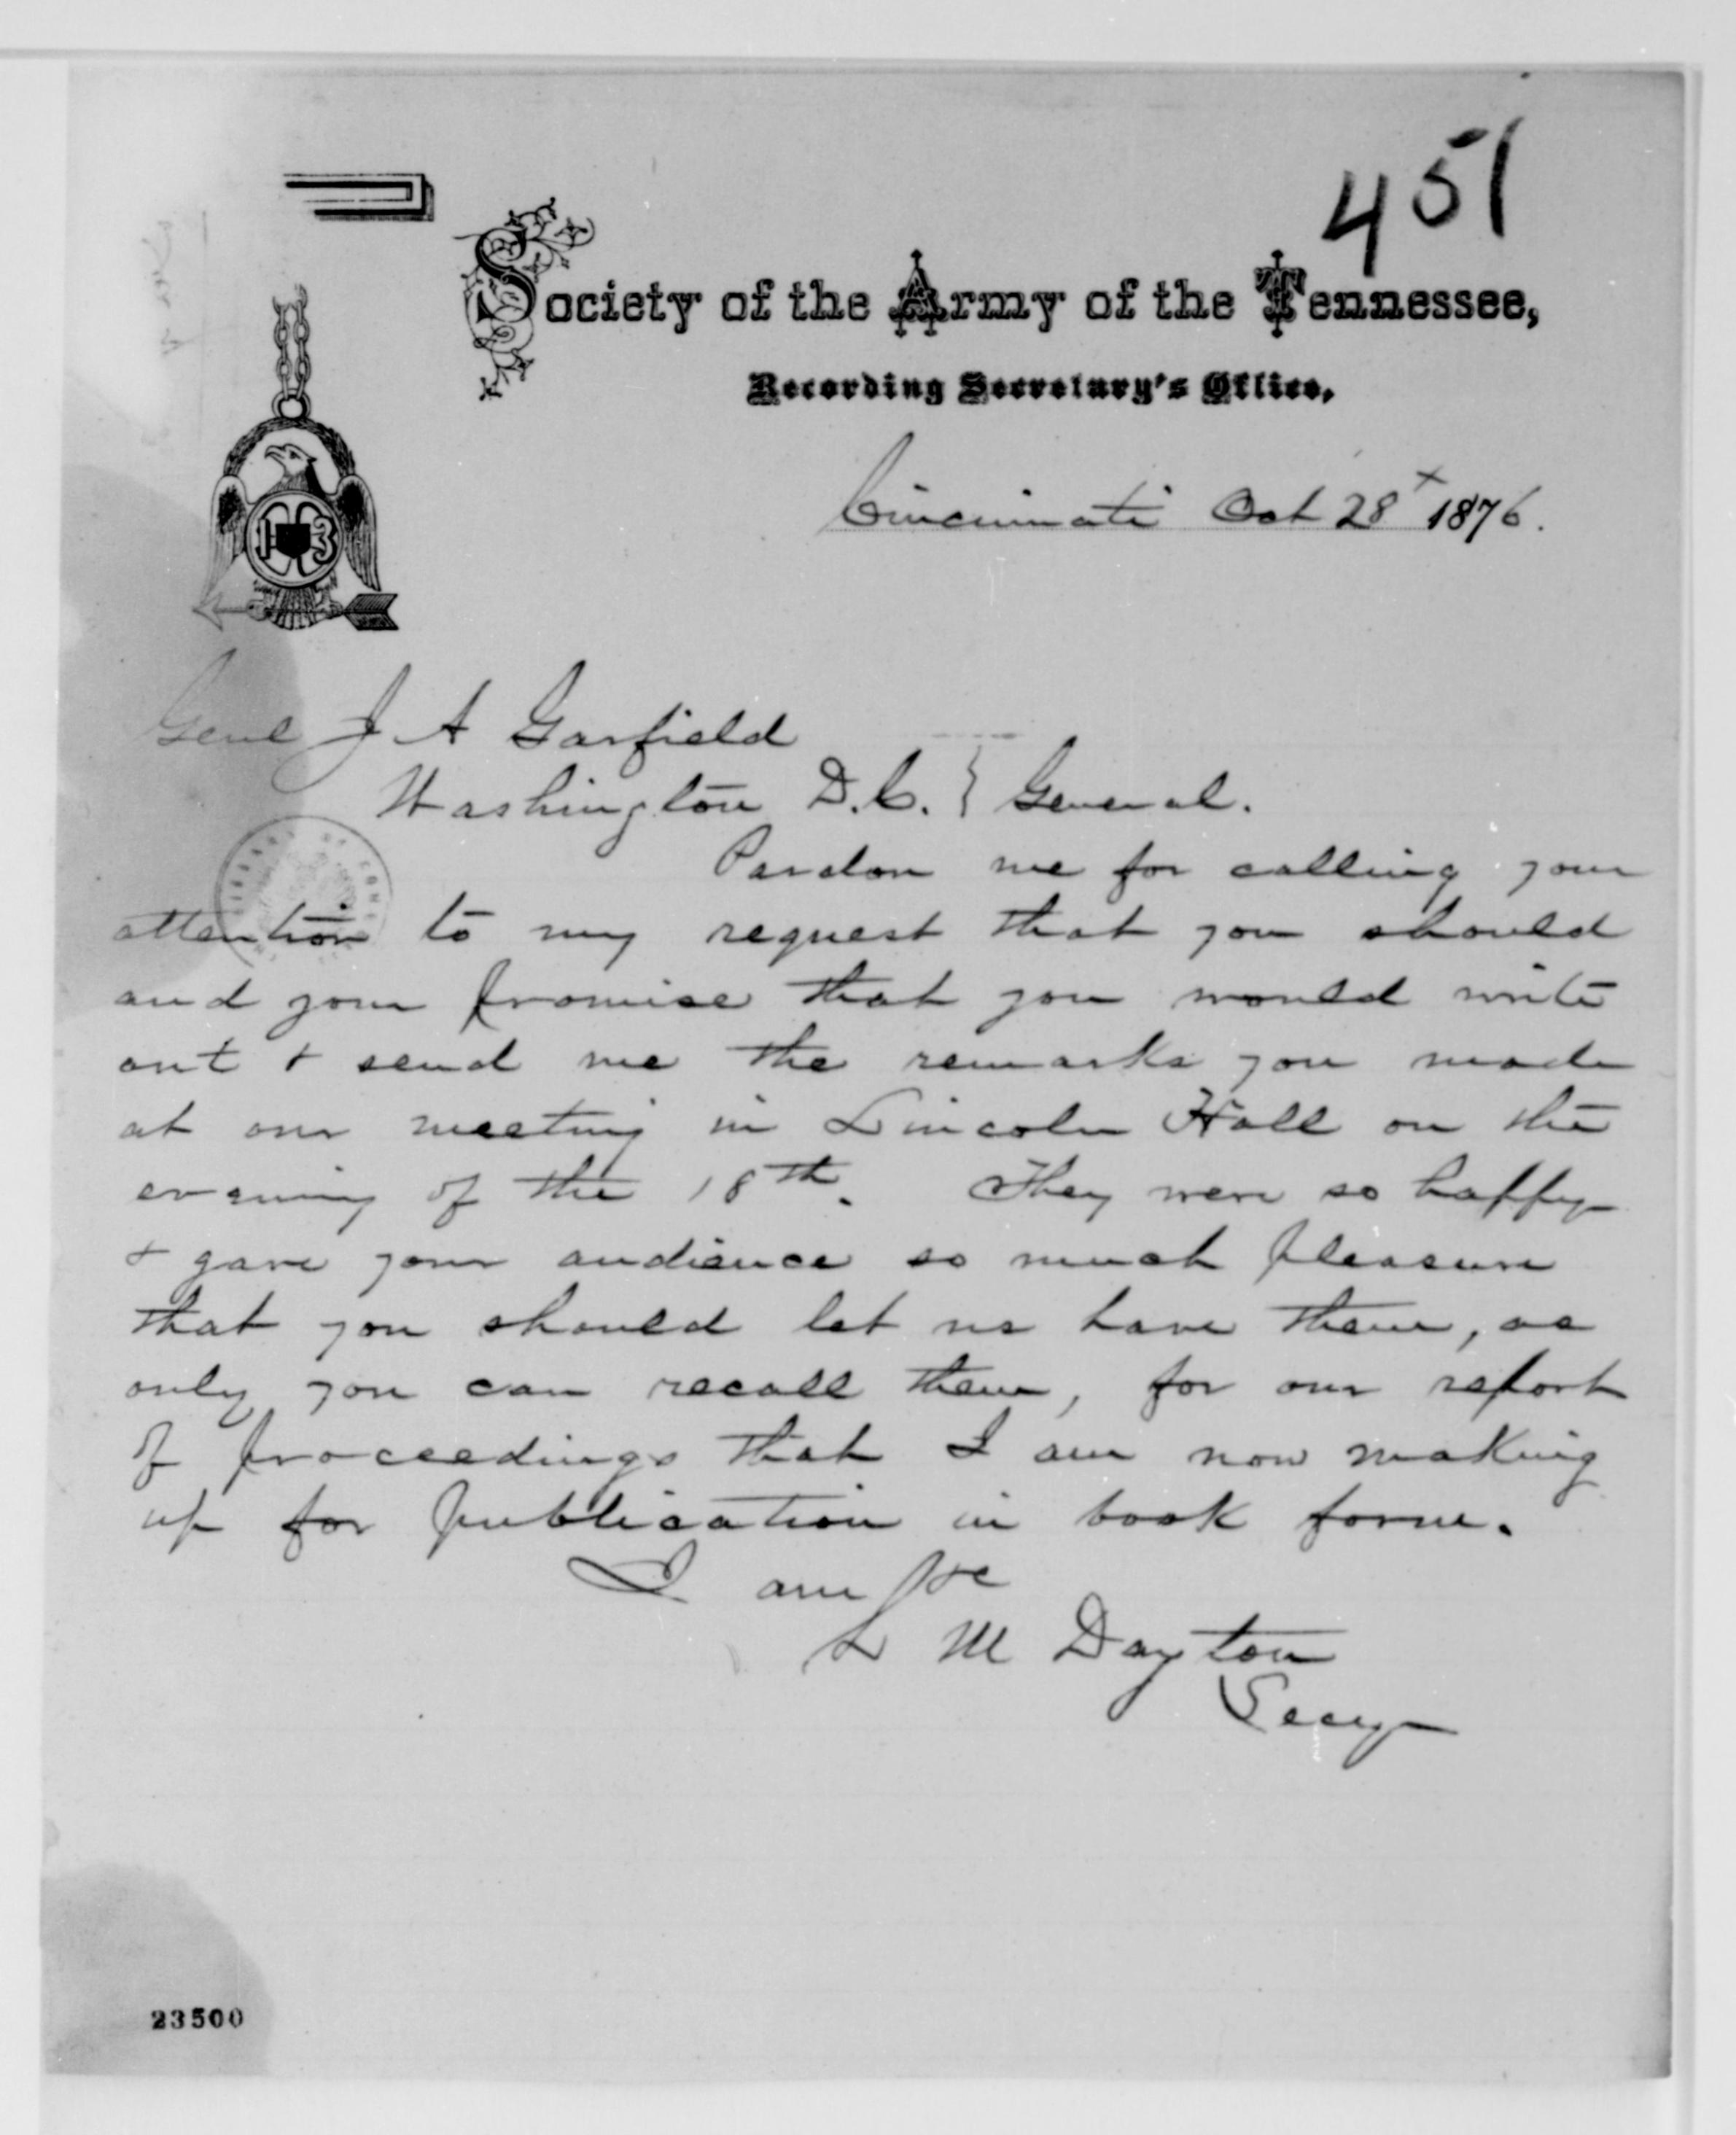 451
Society of the Army of the Tennessee,
Recording Secretary's Office,
Cincinnati Oct 28 1876.
Genl J A Garfield
Washington D.C. } General.
Pardon me for calling your
attention to my request that you should
and your promise that you would write
out + send me the remarks you made
at our meeting in Lincoln Hall on the
evening of the 18th. They were so happy
+ gave your audience so much pleasure
that you should let us have them, as
only you can recall them, for our report
of proceedings that I am now making
up for publication in book form.
I am &c
L M Dayton
Secy
23500